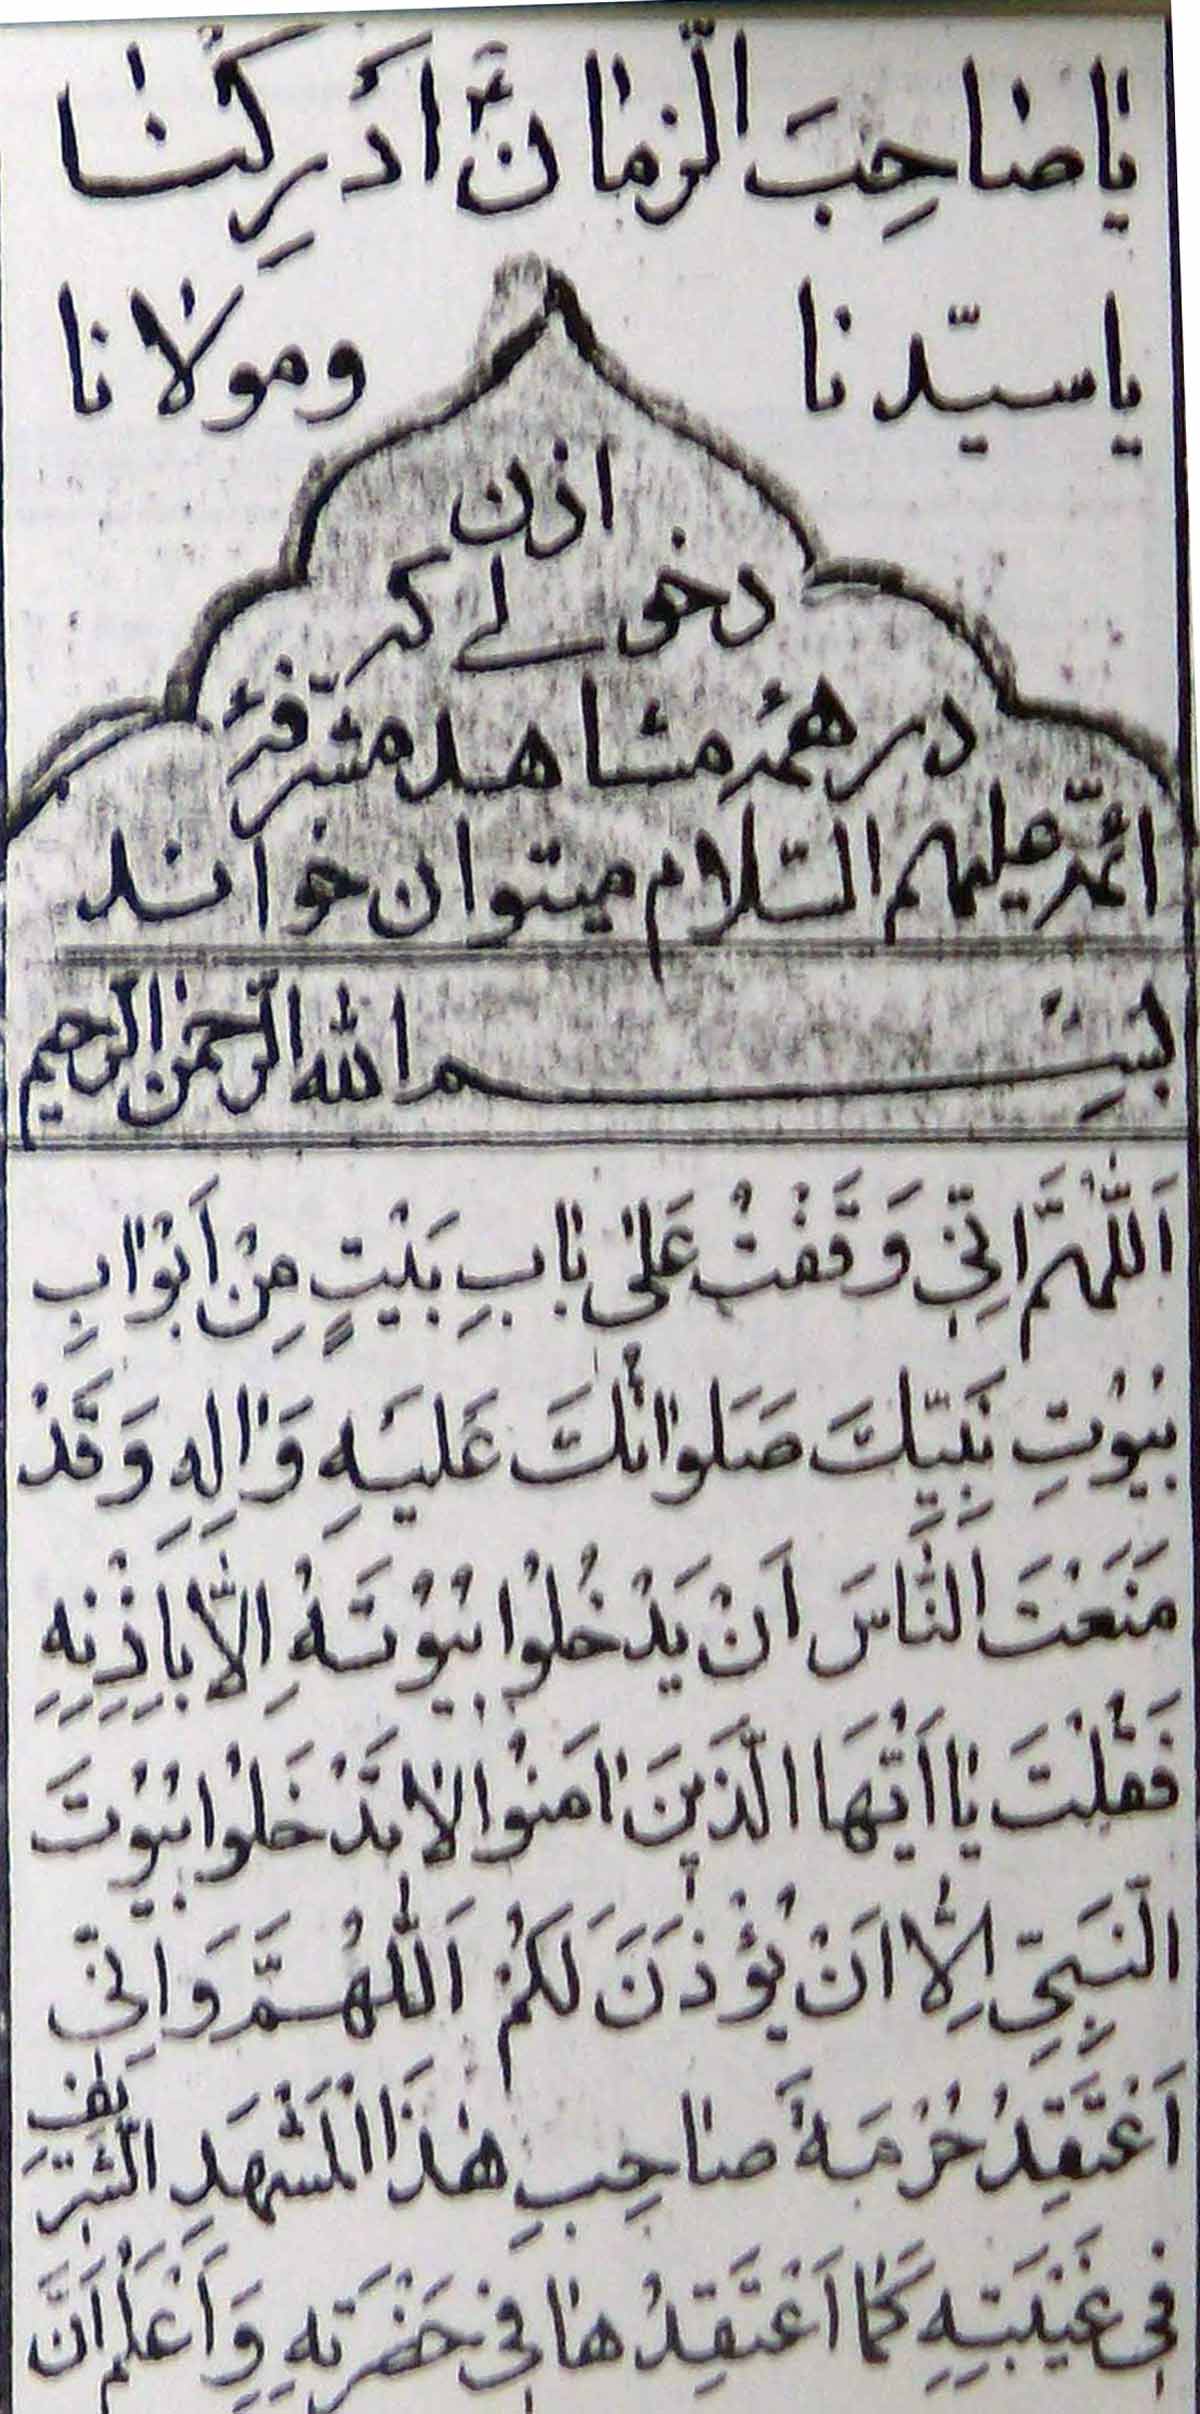 يا صاحِبَ الزمان أدرِكنا
يا سيّدنا ومولانا
اذن
دخولے که
در همهٔ مشاهد مشرّفهٔ
ائمّه عليهم السّلام ميتوان خواند
بِسْم الله الرّحمن الرّحيم
اَللّٰهُمَّ اِنّي وَقَفْتُ عَلىٰ بابِ بَيْتٍ مِنْ اَبْوابِ
بُيُوتِ نَبِيِّكَ صَلَواتُكَ عَلَيهِ وَالِهِ وَقَدْ
مَنَعْتَ النّاسَ اَنْ يَدْخُلُوا بُيُوتَهُ اِلّا بِاِذْنِهِ
فَقُلْتَ يا اَيُّهَا الَّذينَ امَنُوا لا تَدْخُلُوا بُيُوتَ
النَّبِيِّ اِلّا اَنْ يُؤْذَنَ لَكُمْ اَللّٰهُمَّ وَاِنّي
اَعْتَقِدُ حُرْمَةَ صاحِبِ هٰذَا الْمَشْهَدِ الشَّريفِ
في غَيْبَتِهِ كَما اَعْتَقِدُها في حَضْرَتِهِ وَاَعْلَمُ اَنَّ